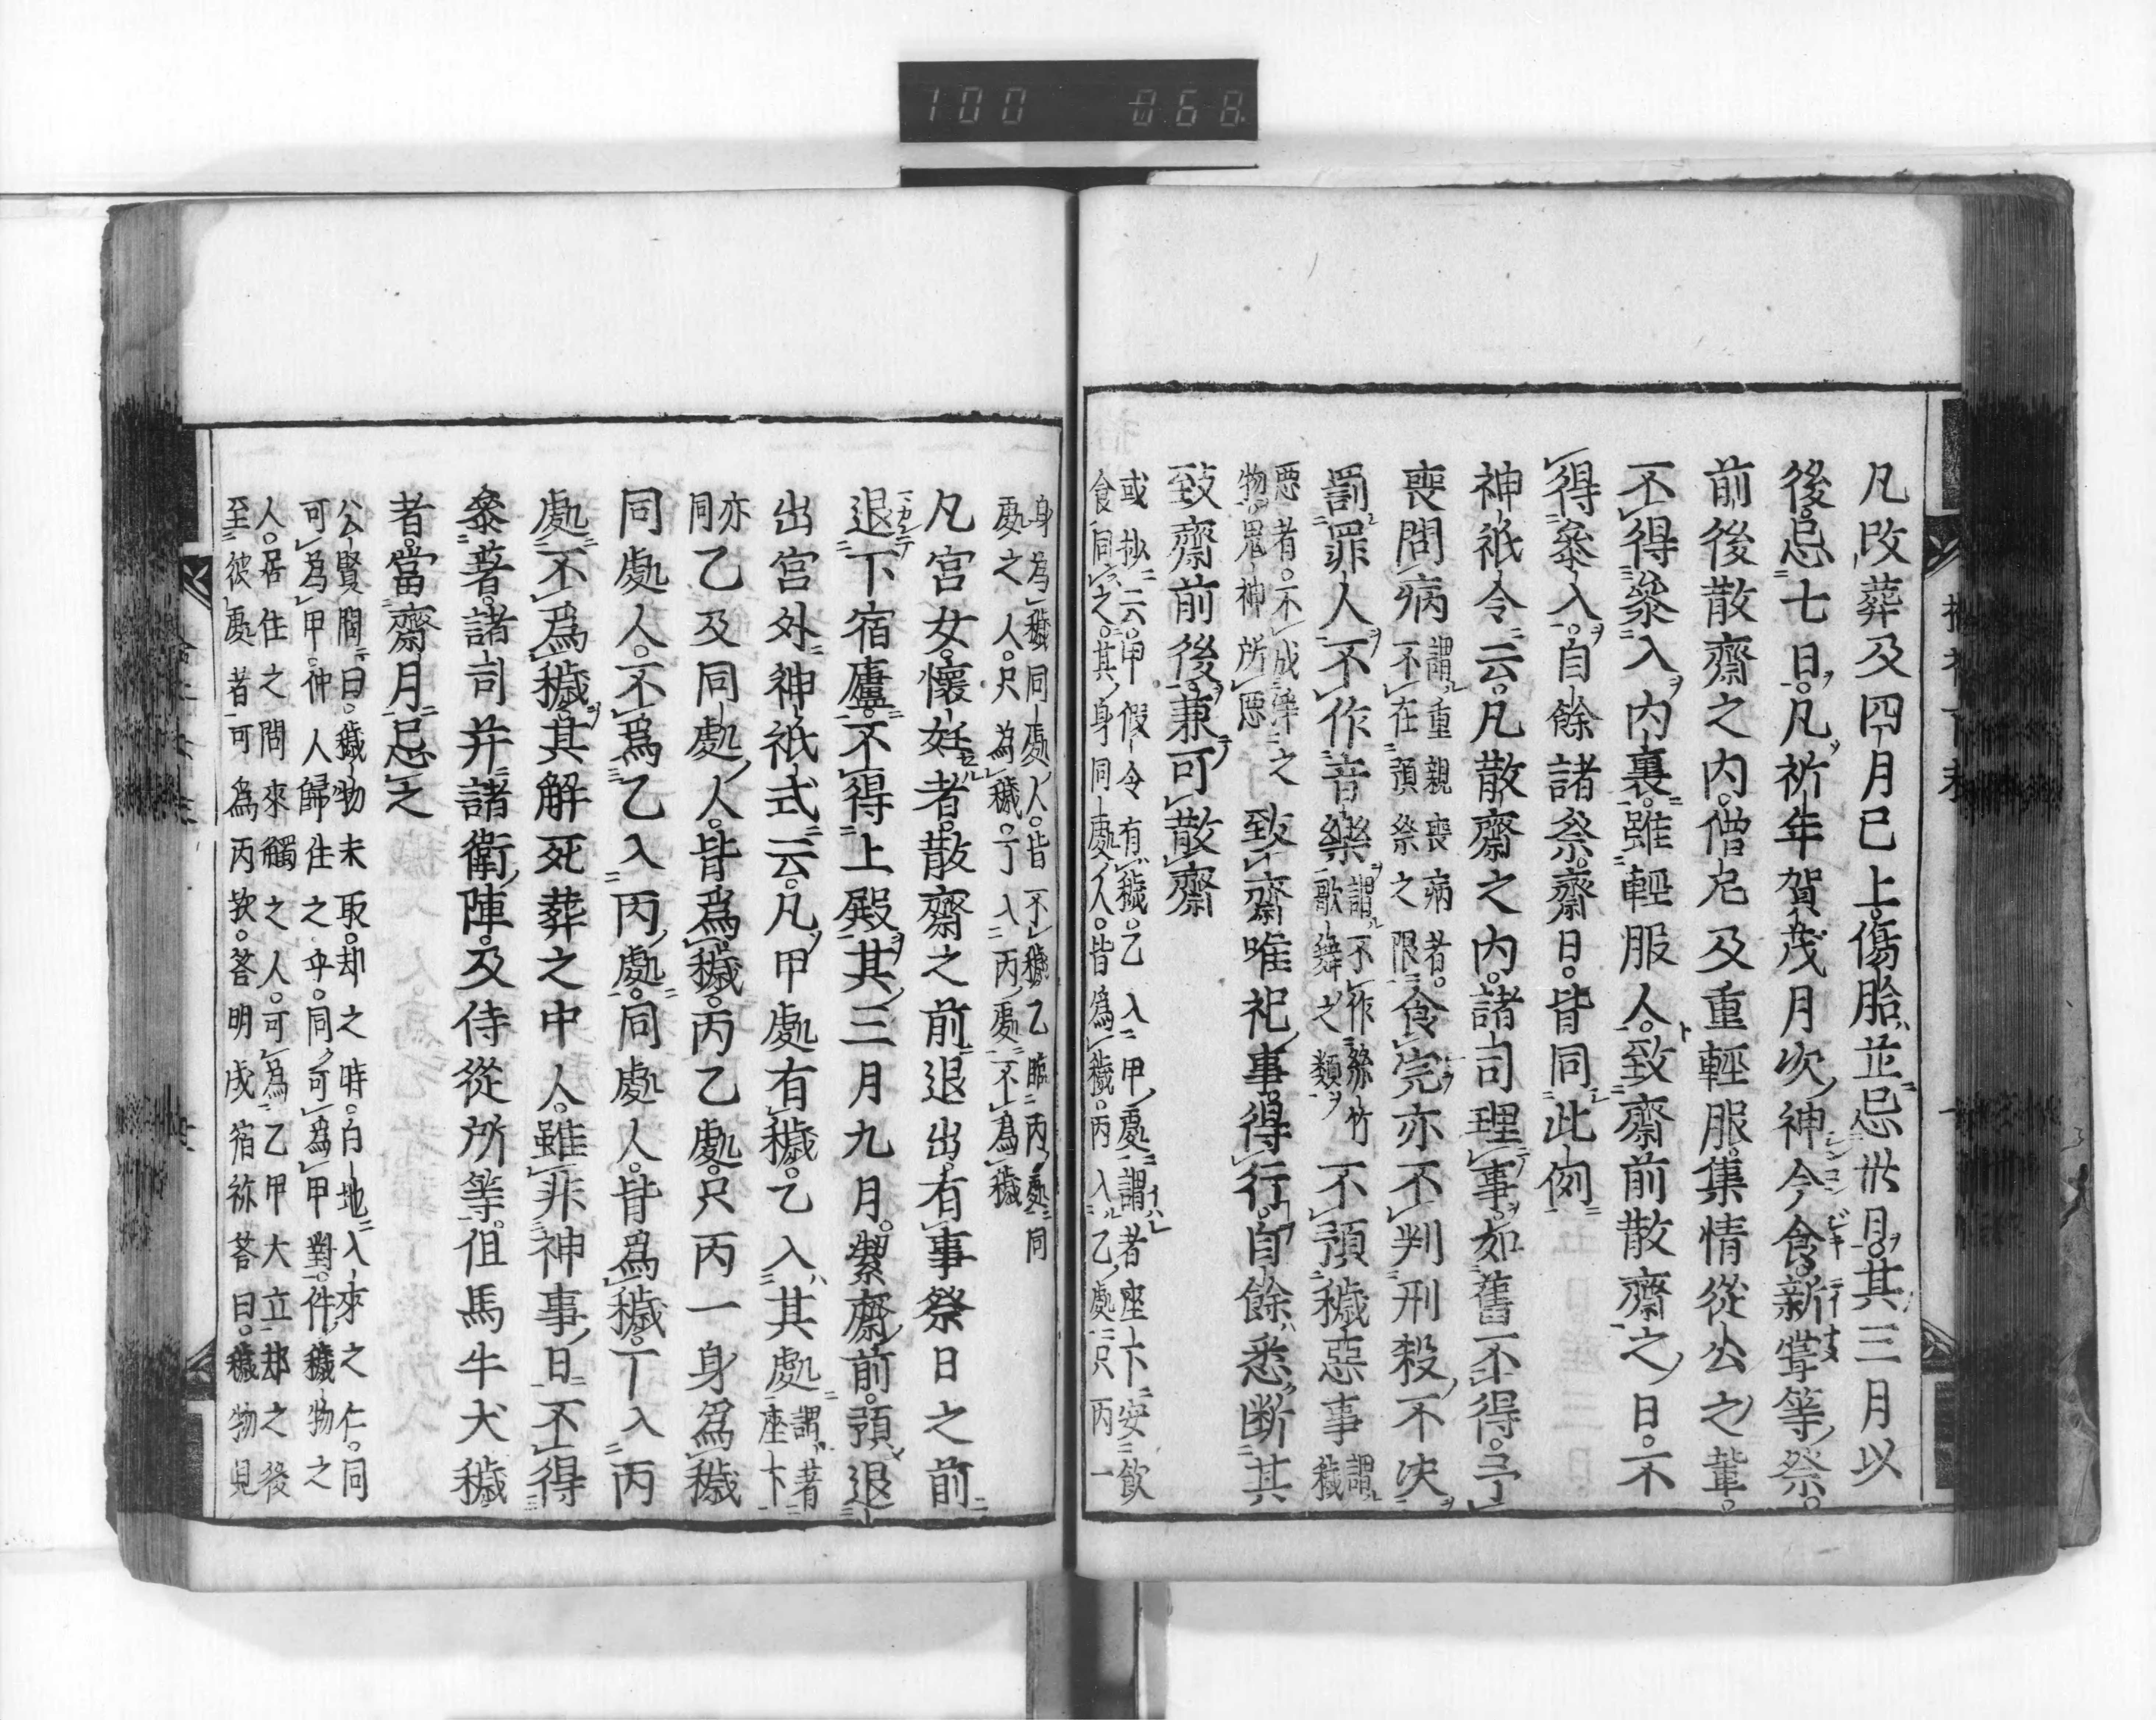 100 068
凡改葬及四月已上傷胎並忌卅日其三月以
後忌七日凡祈年賀茂月次神今食新嘗等祭
前後散齋之內僧尼及重輕服集情從公之輩
不得參入內裏雖輕服人致齋前散齋之日不
得參入自餘諸祭齋日皆同此例
神祇令云凡散齋之內諸司理事如舊不得弔
喪問病謂重親喪病者
不在預祭之限食完亦不判刑殺不决
罰罪人不作音樂謂不作絲竹
歌舞之類不預穢惡事謂穢
惡者不成潔之
物鬼神所惡致齋唯祀事得行自餘悉断其
致齋前後兼可散齋
或抄云甲假令有穢乙入甲處謂者座下安飲
食同之其身同處人皆爲穢丙入乙處只丙一
身為穢同處人皆不穢乙臨丙處同
處之人只為穢丁入丙處不為穢
凡宮女懷妊者散齋之前退出有事祭日之前
退下宿廬不得上殿其三月九月潔齋前預退
出宮外神祇式云凡甲處有穢乙入其處謂著
座下
亦
同乙及同處人皆爲穢丙乙處只丙一身爲穢
同處人不爲乙入丙處同處人皆爲穢丁入丙
處不爲穢其解死葬之中人雖非神事日不得
參著諸司并諸衛陣及侍從所等但馬牛犬穢
者當齋月忌之
公賢問曰穢物未取却之時白地入來之仁同
可為甲仲人歸住之乎同可為甲對件穢物之
人居住之間來觸之人可為乙甲大立却之後
至彼處者可爲丙歟答明成宿祢荅曰穢物見